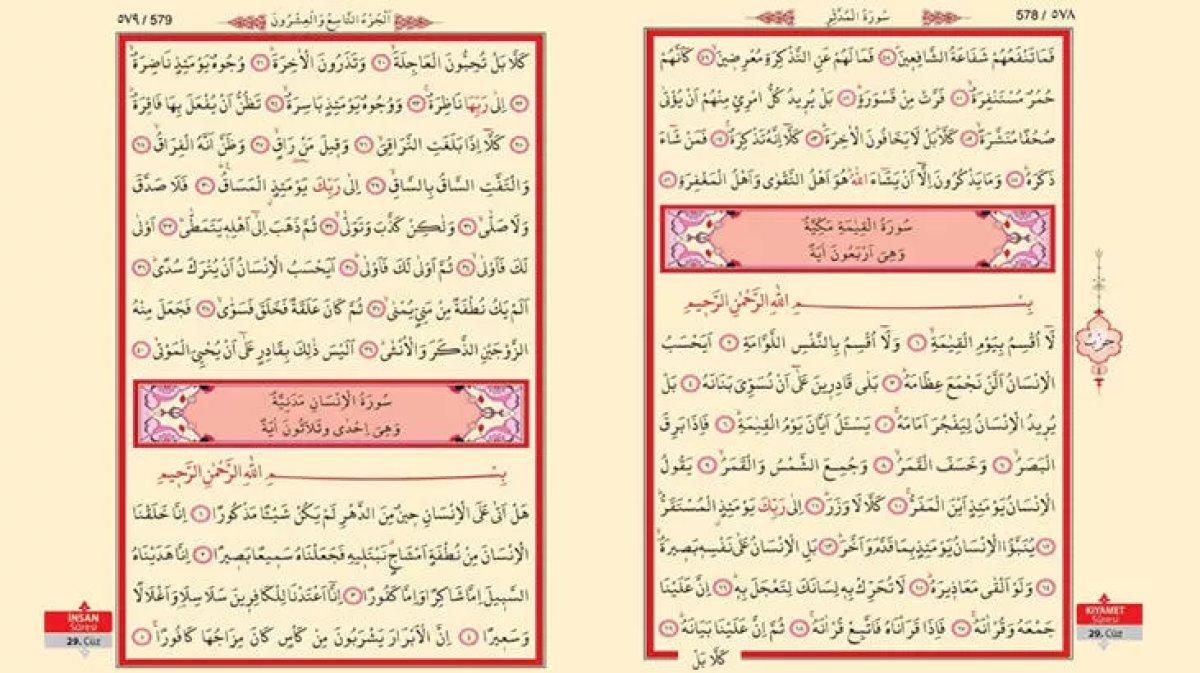 سُورَةُ الْمُدَّثِّرِ
578 / ٥٧٨
فَمَا تَنْفَعُهُمْ شَفَاعَةُ الشَّافِعِينَۜ ﴿٤٨﴾ فَمَا لَهُمْ عَنِ التَّذْكِرَةِ مُعْرِضِينَۙ ﴿٤٩﴾ كَاَنَّهُمْ
حُمُرٌ مُسْتَنْفِرَةٌۙ ﴿٥٠﴾ فَرَّتْ مِنْ قَسْوَرَةٍۜ ﴿٥١﴾ بَلْ يُرِيدُ كُلُّ امْرِئٍ مِنْهُمْ اَنْ يُؤْتٰى
صُحُفًا مُنَشَّرَةًۙ ﴿٥٢﴾ كَلَّاۜ بَلْ لَا يَخَافُونَ الْاٰخِرَةَۜ ﴿٥٣﴾ كَلَّٓا اِنَّهُ تَذْكِرَةٌۚ ﴿٥٤﴾ فَمَنْ شَٓاءَ
ذَكَرَهُۜ ﴿٥٥﴾ وَمَا يَذْكُرُونَ اِلَّٓا اَنْ يَشَٓاءَ اللّٰهُۜ هُوَ اَهْلُ التَّقْوٰى وَاَهْلُ الْمَغْفِرَةِ ﴿٥٦﴾
سُورَةُ الْقِيٰمَةِ مَكِّيَّةٌ
وَهِيَ اَرْبَعُونَ اٰيَةً
بِسْمِ اللّٰهِ الرَّحْمٰنِ الرَّحِيمِ
لَٓا اُقْسِمُ بِيَوْمِ الْقِيٰمَةِۙ ﴿١﴾ وَلَٓا اُقْسِمُ بِالنَّفْسِ اللَّوَّامَةِ ﴿٢﴾ اَيَحْسَبُ
الْاِنْسَانُ اَلَّنْ نَجْمَعَ عِظَامَهُۜ ﴿٣﴾ بَلٰى قَادِرِينَ عَلٰٓى اَنْ نُسَوِّيَ بَنَانَهُ ﴿٤﴾ بَلْ
يُرِيدُ الْاِنْسَانُ لِيَفْجُرَ اَمَامَهُۚ ﴿٥﴾ يَسْـَٔلُ اَيَّانَ يَوْمُ الْقِيٰمَةِۜ ﴿٦﴾ فَاِذَا بَرِقَ
الْبَصَرُۙ ﴿٧﴾ وَخَسَفَ الْقَمَرُۙ ﴿٨﴾ وَجُمِعَ الشَّمْسُ وَالْقَمَرُۙ ﴿٩﴾ يَقُولُ
الْاِنْسَانُ يَوْمَئِذٍ اَيْنَ الْمَفَرُّۚ ﴿١٠﴾ كَلَّا لَا وَزَرَۜ ﴿١١﴾ اِلٰى رَبِّكَ يَوْمَئِذٍ الْمُسْتَقَرُّۜ
﴿١٢﴾ يُنَبَّؤُا الْاِنْسَانُ يَوْمَئِذٍ بِمَا قَدَّمَ وَاَخَّرَۜ ﴿١٣﴾ بَلِ الْاِنْسَانُ عَلٰى نَفْسِهِ بَصِيرَةٌۙ
﴿١٤﴾ وَلَوْ اَلْقٰى مَعَاذِيرَهُۜ ﴿١٥﴾ لَا تُحَرِّكْ بِهِ لِسَانَكَ لِتَعْجَلَ بِهِۜ ﴿١٦﴾ اِنَّ عَلَيْنَا
جَمْعَهُ وَقُرْاٰنَهُۚ ﴿١٧﴾ فَاِذَا قَرَاْنَاهُ فَاتَّبِعْ قُرْاٰنَهُۚ ﴿١٨﴾ ثُمَّ اِنَّ عَلَيْنَا بَيَانَهُۜ ﴿١٩﴾
كَلَّا بَلْ
حزب
KIYAMET
Sûresi
29. Cüz
اَلْجُزْءُ التَّاسِعُ وَالْعِشْرُونَ
٥٧٩ / 579
كَلَّا بَلْ تُحِبُّونَ الْعَاجِلَةَۙ ﴿٢٠﴾ وَتَذَرُونَ الْاٰخِرَةَۜ ﴿٢١﴾ وُجُوهٌ يَوْمَئِذٍ نَاضِرَةٌۙ
﴿٢٢﴾ اِلٰى رَبِّهَا نَاظِرَةٌۚ ﴿٢٣﴾ وَوُجُوهٌ يَوْمَئِذٍ بَاسِرَةٌۙ ﴿٢٤﴾ تَظُنُّ اَنْ يُفْعَلَ بِهَا فَاقِرَةٌۜ
﴿٢٥﴾ كَلَّٓا اِذَا بَلَغَتِ التَّرَاقِيَۙ ﴿٢٦﴾ وَقِيلَ مَنْ رَاقٍۙ ﴿٢٧﴾ وَظَنَّ اَنَّهُ الْفِرَاقُۙ ﴿٢٨﴾
وَالْتَفَّتِ السَّاقُ بِالسَّاقِۙ ﴿٢٩﴾ اِلٰى رَبِّكَ يَوْمَئِذٍ الْمَسَاقُۜ ﴿٣٠﴾ فَلَا صَدَّقَ
وَلَا صَلّٰىۙ ﴿٣١﴾ وَلٰكِنْ كَذَّبَ وَتَوَلّٰىۙ ﴿٣٢﴾ ثُمَّ ذَهَبَ اِلٰٓى اَهْلِهِ يَتَمَطّٰىۜ ﴿٣٣﴾ اَوْلٰى
لَكَ فَاَوْلٰىۙ ﴿٣٤﴾ ثُمَّ اَوْلٰى لَكَ فَاَوْلٰىۜ ﴿٣٥﴾ اَيَحْسَبُ الْاِنْسَانُ اَنْ يُتْرَكَ سُدًىۜ ﴿٣٦﴾
اَلَمْ يَكُ نُطْفَةً مِنْ مَنِيٍّ يُمْنٰىۙ ﴿٣٧﴾ ثُمَّ كَانَ عَلَقَةً فَخَلَقَ فَسَوّٰىۙ ﴿٣٨﴾ فَجَعَلَ مِنْهُ
الزَّوْجَيْنِ الذَّكَرَ وَالْاُنْثٰىۜ ﴿٣٩﴾ اَلَيْسَ ذٰلِكَ بِقَادِرٍ عَلٰٓى اَنْ يُحْيِيَ الْمَوْتٰى ﴿٤٠﴾
سُورَةُ الْاِنْسَانِ مَدَنِيَّةٌ
وَهِيَ اِحْدٰى وَثَلَاثُونَ اٰيَةً
بِسْمِ اللّٰهِ الرَّحْمٰنِ الرَّحِيمِ
هَلْ اَتٰى عَلَى الْاِنْسَانِ حِينٌ مِنَ الدَّهْرِ لَمْ يَكُنْ شَيْـًٔا مَذْكُورًا ﴿١﴾ اِنَّا خَلَقْنَا
الْاِنْسَانَ مِنْ نُطْفَةٍ اَمْشَاجٍۗ نَبْتَلِيهِ فَجَعَلْنَاهُ سَمِيعًا بَصِيرًا ﴿٢﴾ اِنَّا هَدَيْنَاهُ
السَّبِيلَ اِمَّا شَاكِرًا وَاِمَّا كَفُورًا ﴿٣﴾ اِنَّٓا اَعْتَدْنَا لِلْكَافِرِينَ سَلَاسِلَا۬ وَاَغْلَالًا
وَسَعِيرًا ﴿٤﴾ اِنَّ الْاَبْرَارَ يَشْرَبُونَ مِنْ كَأْسٍ كَانَ مِزَاجُهَا كَافُورًاۚ ﴿٥﴾
İNSAN
Sûresi
29. Cüz